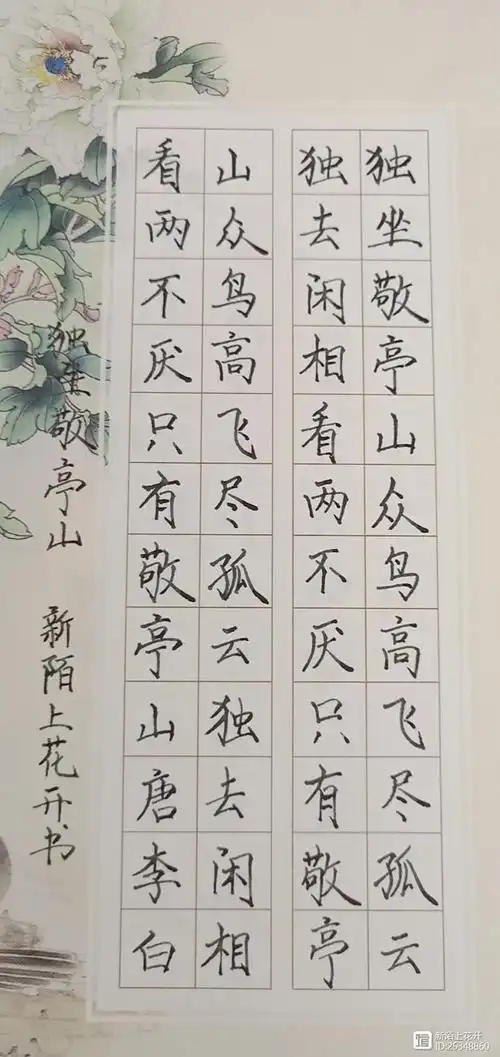 独坐敬亭山众鸟高飞尽孤云
独去闲相看两不厌只有敬亭
山众鸟高飞尽孤云独去闲相
看两不厌只有敬亭山唐李白
独坐敬亭山 新陌上花开书
新陌上花开
ID:25348860